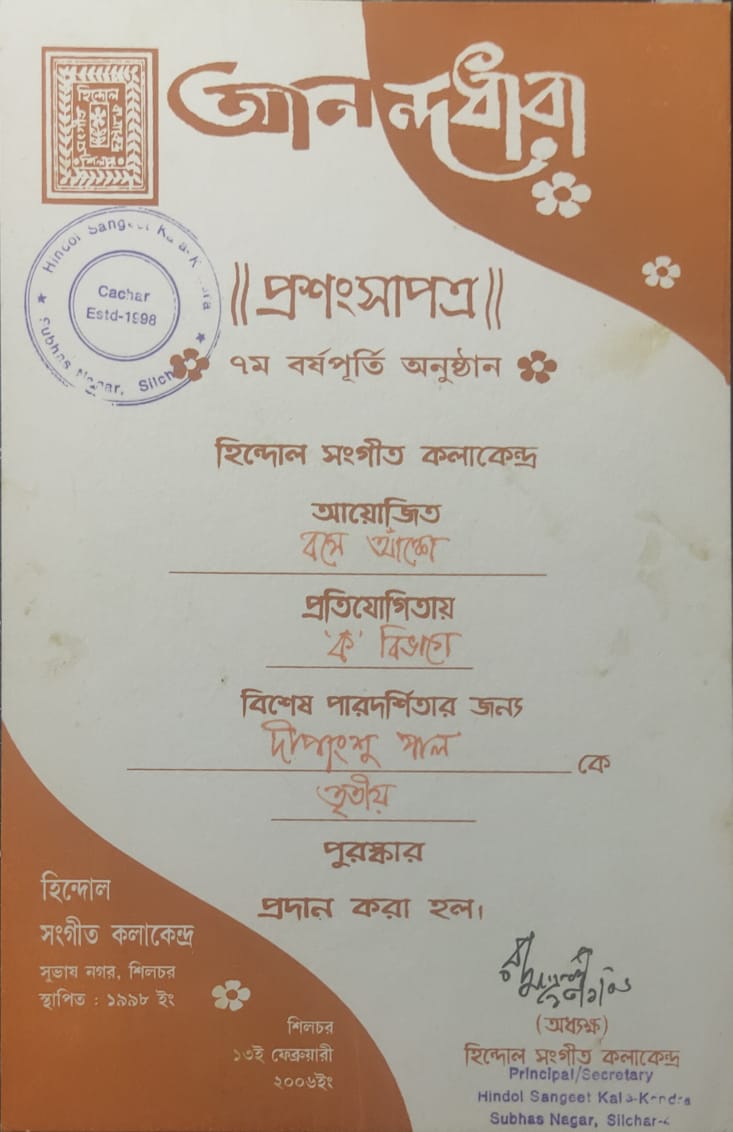 আনন্দধারা
হিন্দোল
Hindol Sangeet Kala-Kendra
Cachar
Estd-1998
Subhas Nagar, Silchar
|| প্রশংসাপত্র ||
৭ম বর্ষপূর্তি অনুষ্ঠান
হিন্দোল সংগীত কলাকেন্দ্র
আয়োজিত
বসে আঁকো
প্রতিযোগিতায়
'ক' বিভাগে
বিশেষ পারদর্শিতার জন্য
দীপাংশু পাল কে
তৃতীয়
পুরস্কার
প্রদান করা হল।
হিন্দোল
সংগীত কলাকেন্দ্র
সুভাষ নগর, শিলচর
স্থাপিত : ১৯৯৮ ইং
শিলচর
১৩ই ফেব্রুয়ারী
২০০৬ইং
(অধ্যক্ষ)
হিন্দোল সংগীত কলাকেন্দ্র
Principal/Secretary
Hindol Sangeet Kala-Kendra
Subhas Nagar, Silchar-